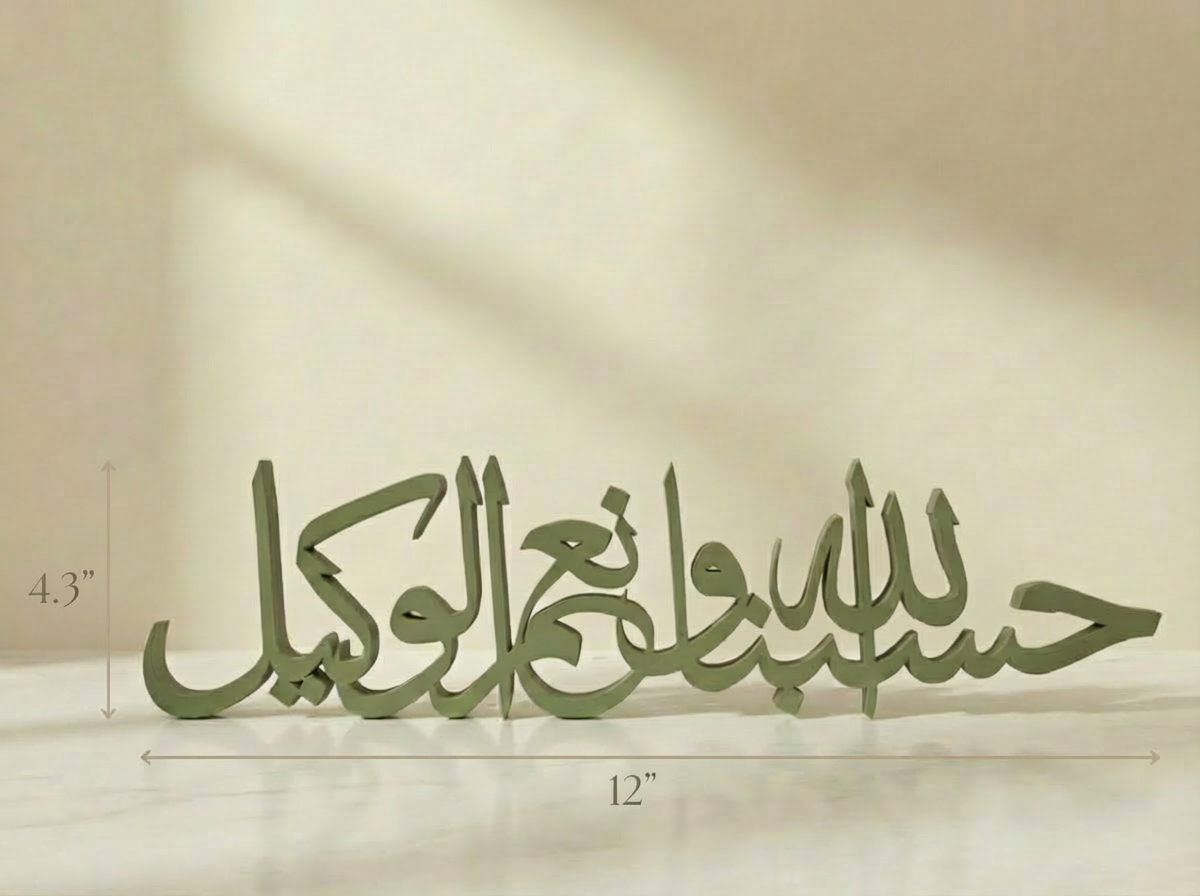 حسبنا الله ونعم الوكيل
4.3”
12”